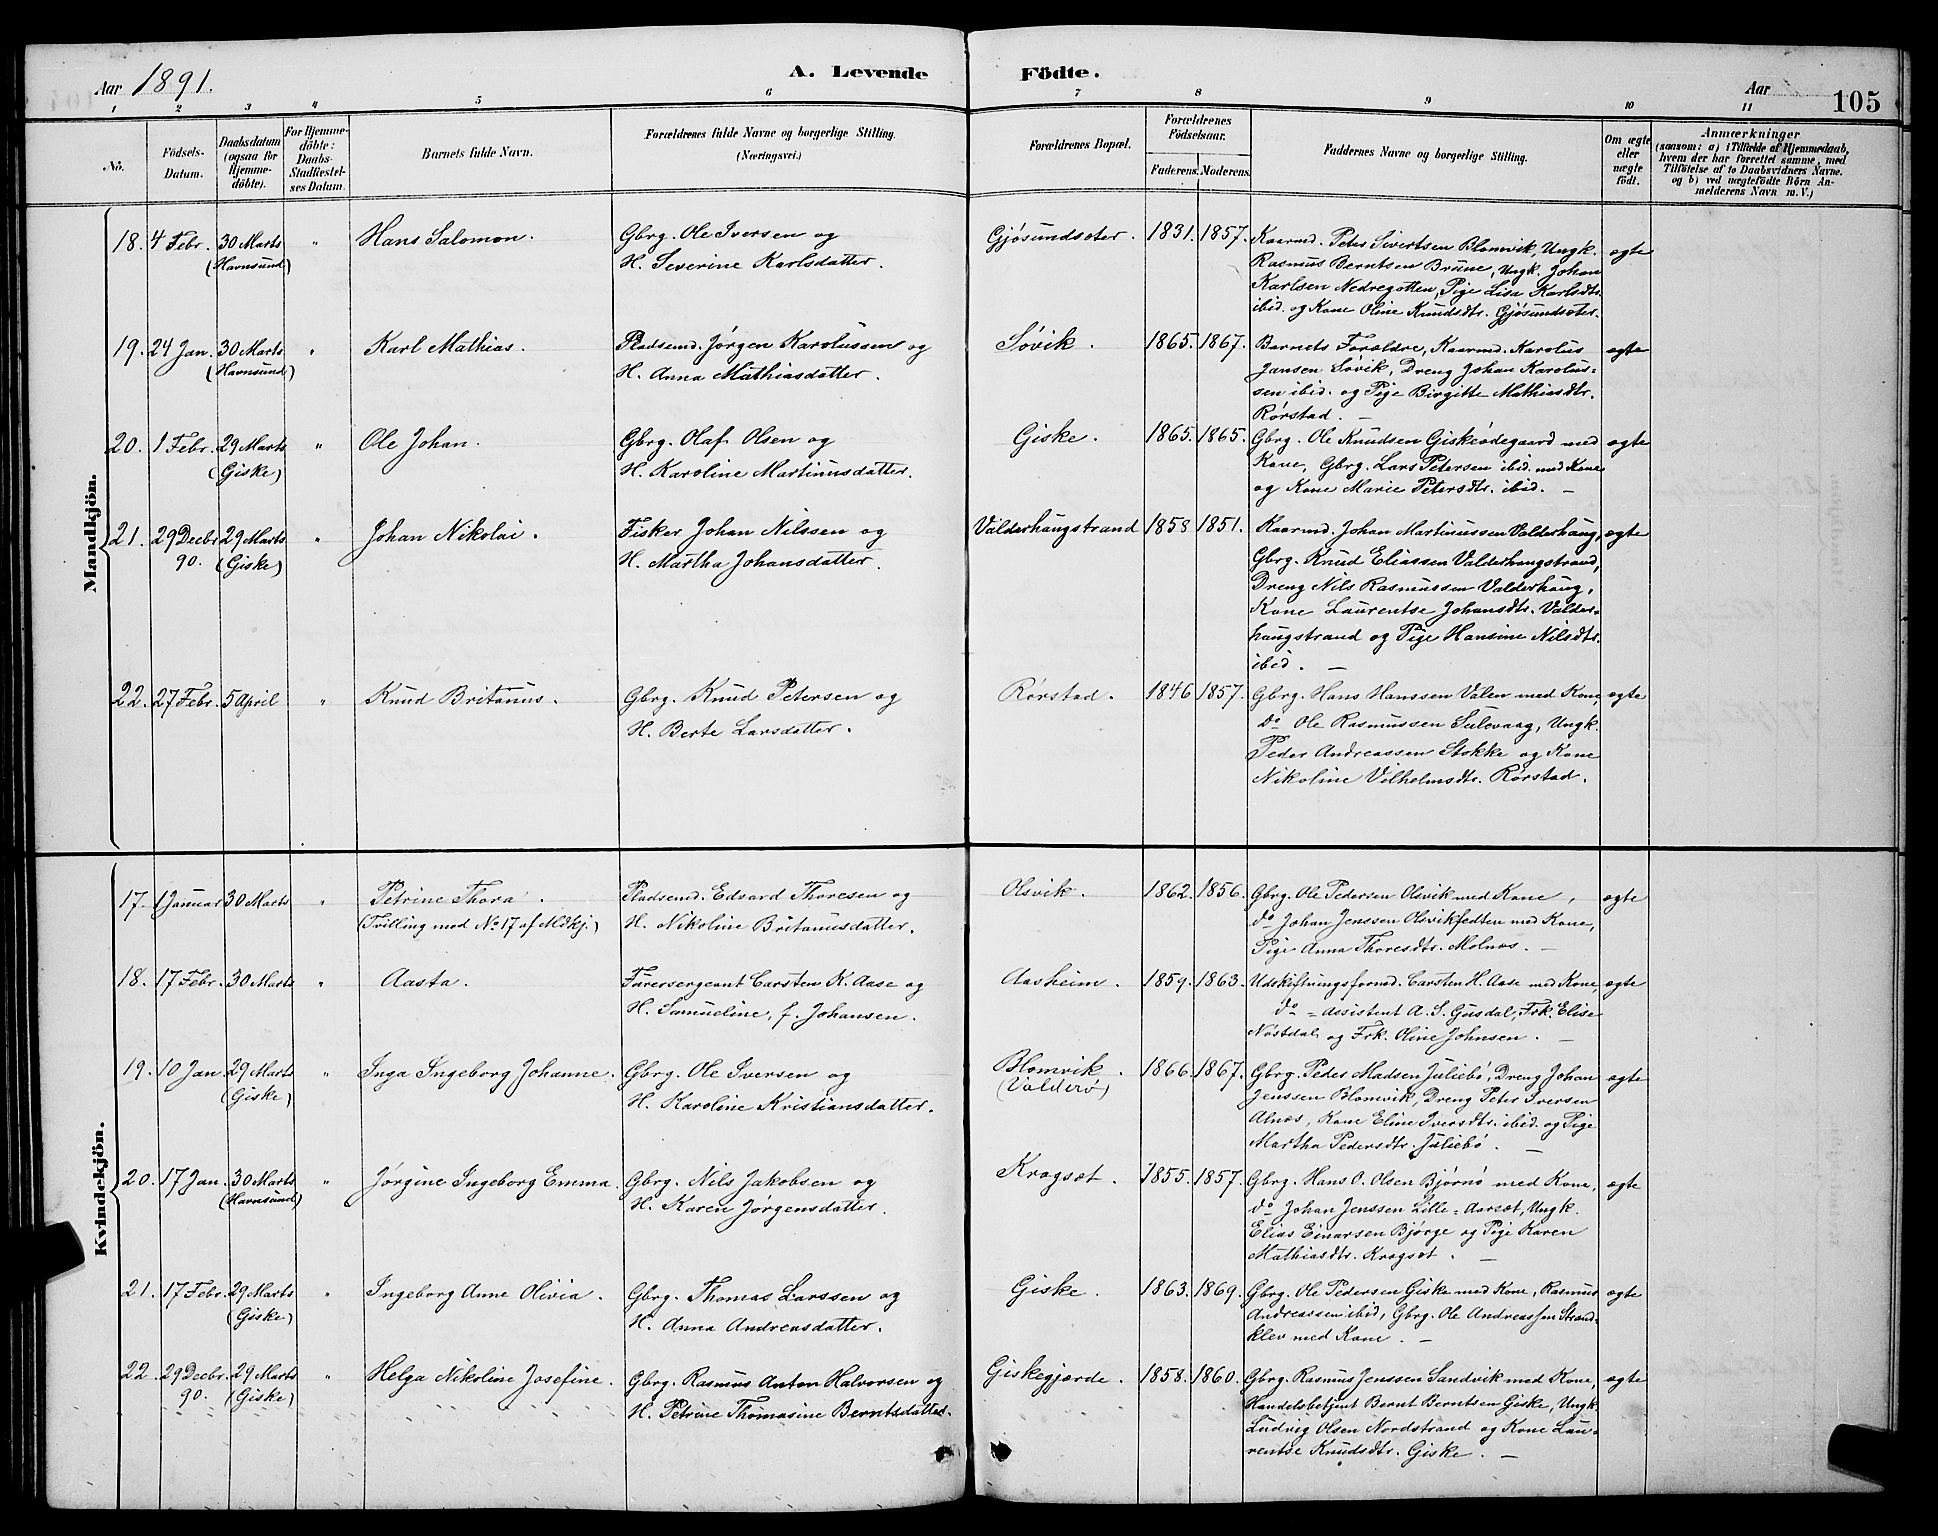 Aar 1891.
A. Levende Födte.
Aar
105
1 2 3 4 5 6 7 8 9 10 11
No.
Födsels-Datum.
Daabsdatum (ogsaa for Hjemme-döbte).
For Hjemme-döbte: Daabs-Stadfæstel-ses Datum.
Barnets fulde Navn.
Forældrenes fulde Navne og borgerlige Stilling. (Næringsvei.)
Forældrenes Bopæl.
Forældrenes Födselsaar.
Faderens. Moderens.
Faddernes Navne og borgerlige Stilling.
Om ægte eller uægte födt.
Anmærkninger
(saasom: a) i Tilfælde af Hjemmedaab, hvem der har forrettet samme, med Tilföielse af to Daabsvidners Navne. og b) ved uægtefödte Börn An-melderens Navn m. V.)
Mandkjön.
18. 4 Febr. 30 Marts (Havnsund) " Hans Salomon. Gbrg. Ole Iversen og
H. Severine Karlsdatter.
Gjøsundseter. 1831. 1857. Kaarmd. Peter Sivertsen Blomvik, Ungk. ægte
Rasmus Berntsen Brune, Ungk. Johan
Karlsen Nedregotten, Pige Lisa Karlsdtr.
ibid. og Kone Oline Knudsdtr. Gjøsundseter.
19. 24 Jan. 30 Marts (Havnsund) " Karl Mathias. Pladsemd. Jørgen Karolussen og
H. Anna Mathiasdatter.
Søvik. 1865. 1867. Barnets Forældre, Kaarmd. Karolus ægte
Jansen Søvik, Dreng Johan Karolus-
sen ibid. og Pige Birgitte Mathiasdtr.
Rørstad.
20. 1 Febr. 29 Marts (Giske) " Ole Johan. Gbrg. Olaf Olsen og
H. Karoline Martinusdatter.
Giske. 1865. 1865. Gbrg. Ole Knudsen Giskeødegaard med ægte
Kone, Gbrg. Lars Petersen ibid. med Kone
og Kone Marie Petersdtr. ibid. —
21. 29 Decbr. 90. 29 Marts (Giske) " Johan Nikolai. Fisker Johan Nilssen og
H. Martha Johansdatter.
Valderhaugstrand 1858 1851. Kaarmd. Johan Martinussen Valderhaug, ægte
Gbrg. Knud Eliassen Valderhaugstrand,
Dreng Nils Rasmussen Valderhaug,
Kone Laurentse Johansdtr. Valder-
haugstrand og Pige Hansine Nilsdtr.
ibid. —
22. 27 Febr. 5 April " Knud Britanus. Gbrg. Knud Petersen og
H. Berte Larsdatter.
Rørstad. 1846 1857. Gbrg. Hans Hanssen Valen med Kone, ægte
do Ole Rasmussen Sulevaag, Ungk.
Peder Andreassen Stokke og Kone
Nikoline Vilhelmsdtr. Rørstad.
Kvindekjön.
17. 1 Januar 30 Marts " Petrine Thora. Pladsemd. Edvard Thoresen og
(Tvilling med No 17 af Mdkj.) H. Nikoline Britanusdatter.
Olsvik. 1862. 1856. Gbrg. Ole Pedersen Olsvik med Kone, ægte
do Johan Jenssen Olsvikfedten med Kone,
Pige Anna Thoresdtr. Molnæs. —
18. 17 Febr. 30 Marts " Aasta. Furersergeant Carsten K. Aase og
H. Samueline, f. Johansen.
Aasheim. 1859. 1863. Udskiftningsformd. Carsten H. Aase med Kone, ægte
do = assistent A. S. Gusdal, Frk. Elise
Nostdal og Frk. Oline Johnsen. —
19. 10 Jan. 29 Marts (Giske) " Inga Ingeborg Johanne. Gbrg. Ole Iversen og
H. Karoline Kristiansdatter.
Blomvik (Valderø). 1866. 1867. Gbrg. Peder Madsen Juliebø, Dreng Johan ægte
Jenssen Blomvik, Dreng Peter Iversen
Alnæs, Kone Eline Iversdtr. ibid. og Pige
Martha Pedersdtr. Juliebø. —
20. 17 Jan. 30 Marts (Havnsund) " Jørgine Ingeborg Emma. Gbrg. Nils Jakobsen og
H. Karen Jørgensdatter.
Krogsæt. 1855. 1857. Gbrg. Hans O. Olsen Bjørnø med Kone, ægte
do Johan Jenssen Lille-Aarsæt, Ungk.
Elias Einarsen Bjørge og Pige Karen
Mathiasdtr. Krogsæt. —
21. 17 Febr. 29 Marts (Giske) " Ingeborg Anne Olivia. Gbrg. Thomas Larssen og
H. Anna Andreasdatter.
Giske. 1863. 1869. Gbrg. Ole Pedersen Giske med Kone, Rasmus ægte
Andreassen ibid, Gbrg. Ole Andreassen Strand-
klev med Kone. —
22. 29 Decbr. 90. 29 Marts (Giske) " Helga Nikoline Josefine. Gbrg. Rasmus Anton Halvorsen og
H. Petrine Thomasine Berntsdatter.
Giskegjærde. 1858. 1860. Gbrg. Rasmus Jenssen Sandvik med Kone, ægte
Handelsbetjent Bernt Berntsen Giske, Ungk.
Ludvig Olsen Nordstrand og Kone Lau-
rentse Knudsdtr. Giske. —